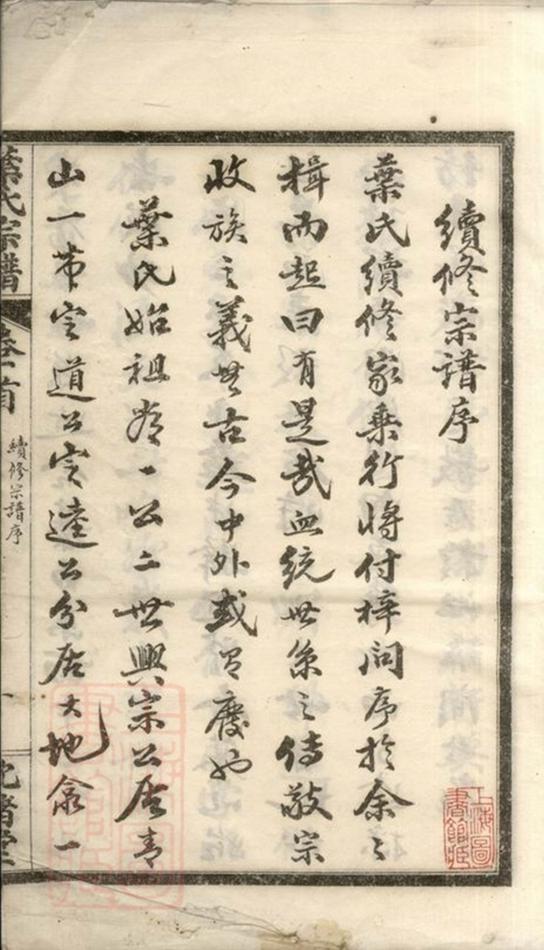 續修宗譜序
葉氏續修家乘行將付梓問序於余余
揖而起曰有是哉血統世系之傳敬宗
收族之義無古今中外或可廢也
葉氏始祖 一公二世興宗公居青
山一帶 道公 達公分居大地 一
葉氏宗譜
卷首
續修宗譜序
一
堂
上海圖書館藏